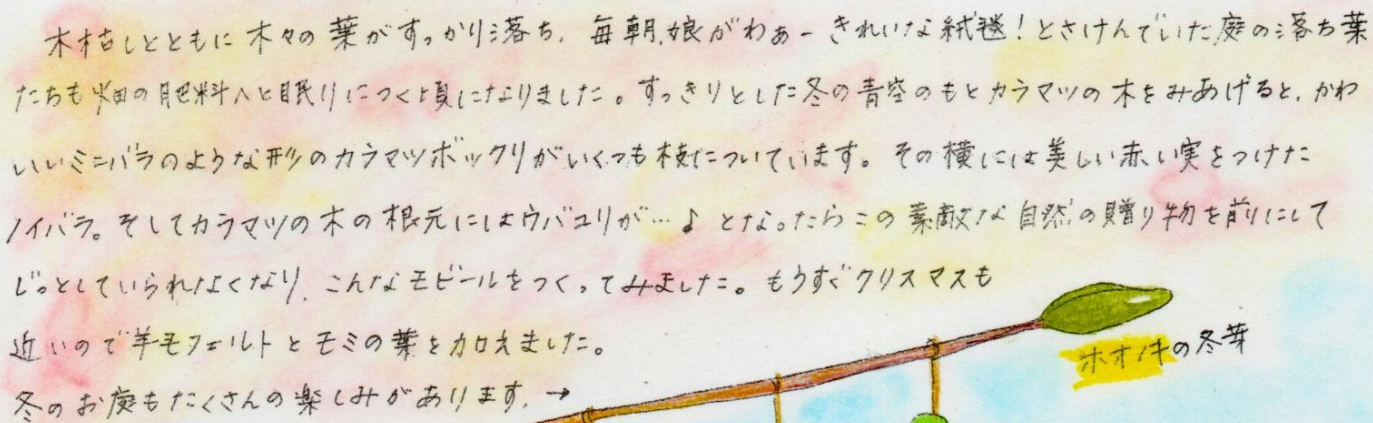 木枯しとともに木々の葉がすっかり落ち、毎朝、娘がわぁーきれいな絨毯！とさけんでいた庭の落ち葉
たちも畑の肥料へと眠りにつく頃になりました。すっきりとした冬の青空のもとカラマツの木をみあげると、かわ
いいミニバラのような形のカラマツボックリがいくつも枝についています。その横には美しい赤い実をつけた
ノイバラ。そしてカラマツの木の根元にはウバユリが…♪となったらこの素敵な自然の贈り物を前にして
じっとしていられなくなり、こんなモビールをつくってみました。もうすぐクリスマスも
近いので羊毛フェルトとモミの葉を加えました。
冬のお庭もたくさんの楽しみがあります。→
ホオノキの冬芽